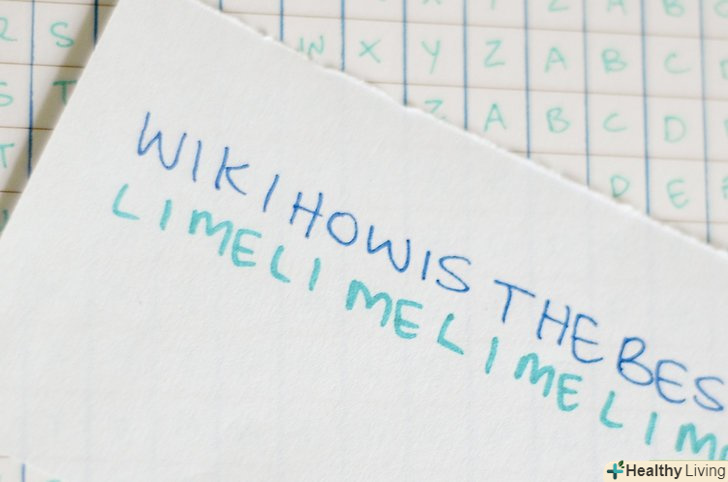 Z A B
S W X Y Z A B C
S T Z A B C D
T D E
WIKIHOWIS THE BES
LIMELIMELIMELIM
Healthy Living